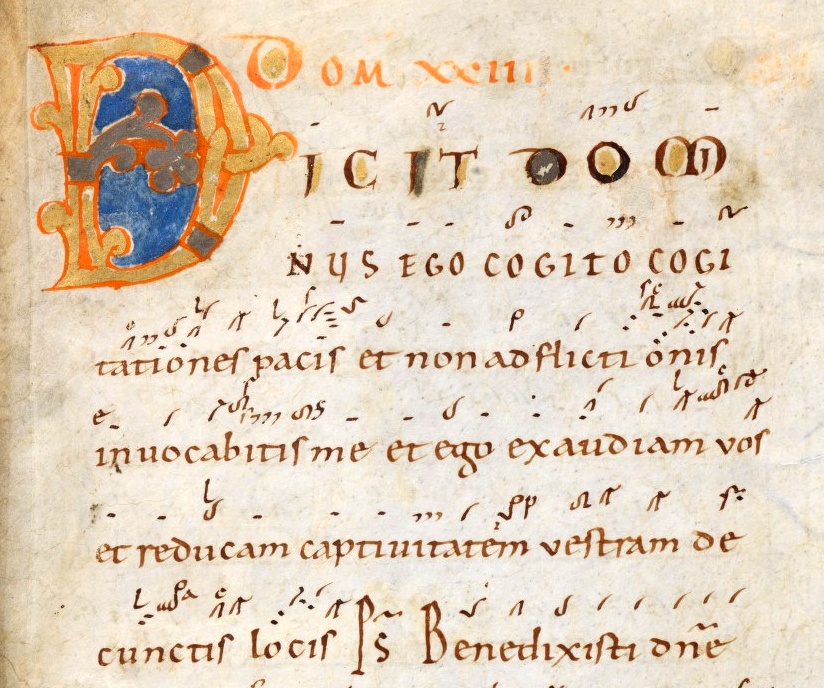 Dom xxiiii.
DICIT DOMI
NUS EGO COGITO COGI
tationes pacis et non adflictionis
inuocabitis me et ego exaudiam vos
et reducam captiuitatem vestram de
cunctis locis Ps Benedixisti dne